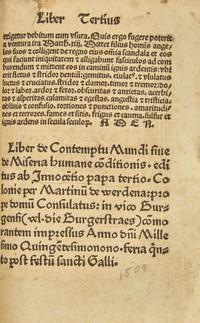 Liber Tertius
exigetur debitum cum vsura. Quis ergo fugere poterit
a ventura ira Matth. iij. Mittet filius hominis ange-
los suos & colligent de regno eius omnia scandala & eos
qui faciunt iniquitatem & alligabunt fasciculos ad com
burendum & mittent eos in caminū ignis ardentis: vbi
erit fletus & stridor dentiū: gemitus, eiulatꝰ, & vlulatus
luctus & cruciatus, stridor & clamor, timor & tremor: do-
lor & labor, ardor & fetor, obscuritas & anxietas, acerbi-
tas & asperitas, calamitas & egestas, angustia & tristicia,
obliuio & confusio, tortiones & punctiones, amaritudi-
nes & terrores, fames & sitis, frigus & cauma, sulfur &
ignis ardens in secula seculoꝝ. A M E N.
Liber de Contemptu Mundi siue
de Miseria humane cōditionis. edi
tus ab Innocētio papa tertio. Co
lonie per Martinū de werdena: pro
pe domū Consulatus: in vico Bur
genſi (vel. die Burgerstraes) cōmo
rantem impressus Anno dn̄i Mille
simo Quingētesimonono. feria qn̄
to post festū sancti Galli.
1509